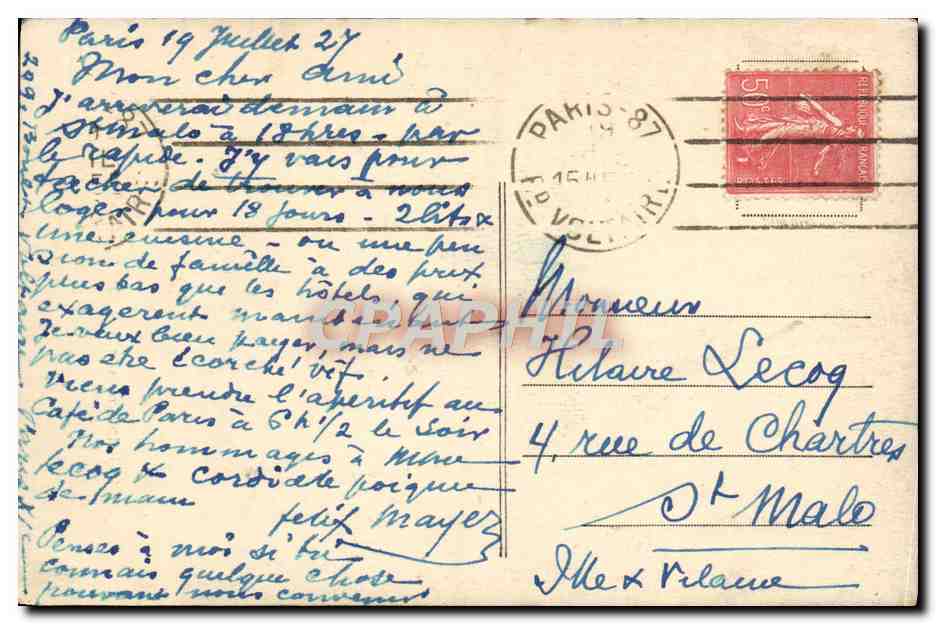 Paris 19 Juillet 27
Mon cher ami
J'arriverai demain à
St malo à 18 hres - par
le rapide. J'y vais pour
tacher de trouver à nous
loger pour 18 jours - 2 lits &
une cuisine - ou une pen
sion de famille à des prix
plus bas que les hôtels, qui
exagerent maintenant
Je veux bien payer, mais ne
pas être écorché vif.
Viens prendre l'apéritif au
Café de Paris à 6h 1/2 le soir
Nos hommages à Mme
Lecoq & cordiale poignée
de main
felix Mayer
Penses à moi si tu
connais quelque chose
pouvant nous convenir
209,
PARIS-87
19
15H
R. VOLTAIRE
50c
REPUBLIQUE FRANCAISE
POSTES
Monsieur
Hilaire Lecoq
4, rue de Chartres
St Malo
Ille & Vilaine
CPAPHIL